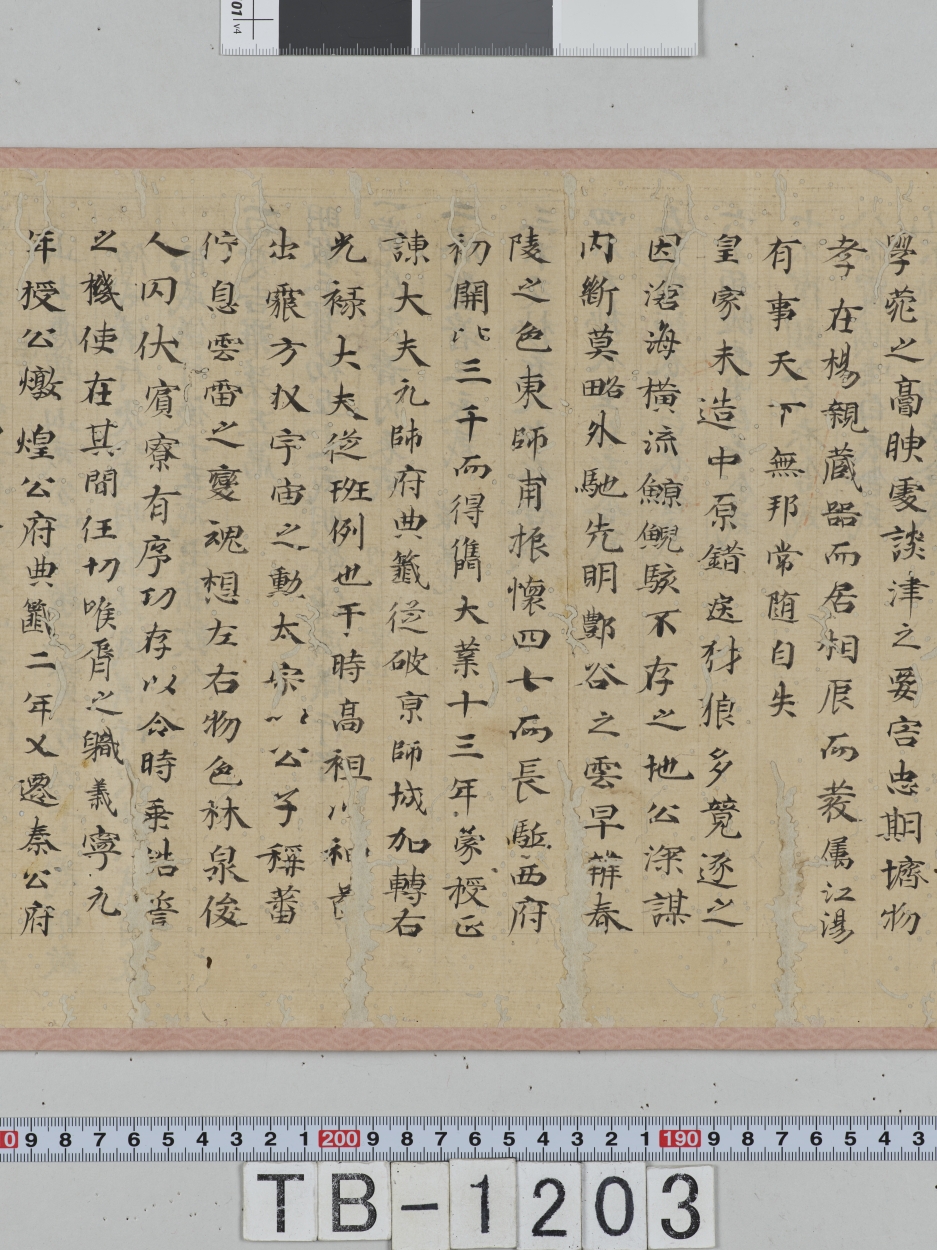 01
V4
學苑之高腴處談津之要害忠期壒物
孝在楊親蔵器而居相辰而蔆属江湯
有事天下無邦常随自失
皇家未造中原錯逆犲狼多競逐之
因滄海橫流鯨鯢駭不存之地公深謀
内斷莫略外馳先明酆谷之雲早辨春
陵之色東師甫振懷四七而長駈西府
初開以三千而得儁大業十三年蒙授正
諫大夫元帥府典籤從破京師城加轉右
光祿大夫從班例也于時高祖
出震方収宇宙之勳太宗以公子稱蕃
佇息雲雷之變魂想左右物色林泉俊
人閃伏賓寮有序功存以令時乗誥誉
之機使在其間任切唯脣之職義寧元
年授公燉煌公府典籤二年又遷秦公府
0 9 8 7 6 5 4 3 2 1 200 9 8 7 6 5 4 3 2 1 190 9 8 7 6 5 4 3
TB-1203